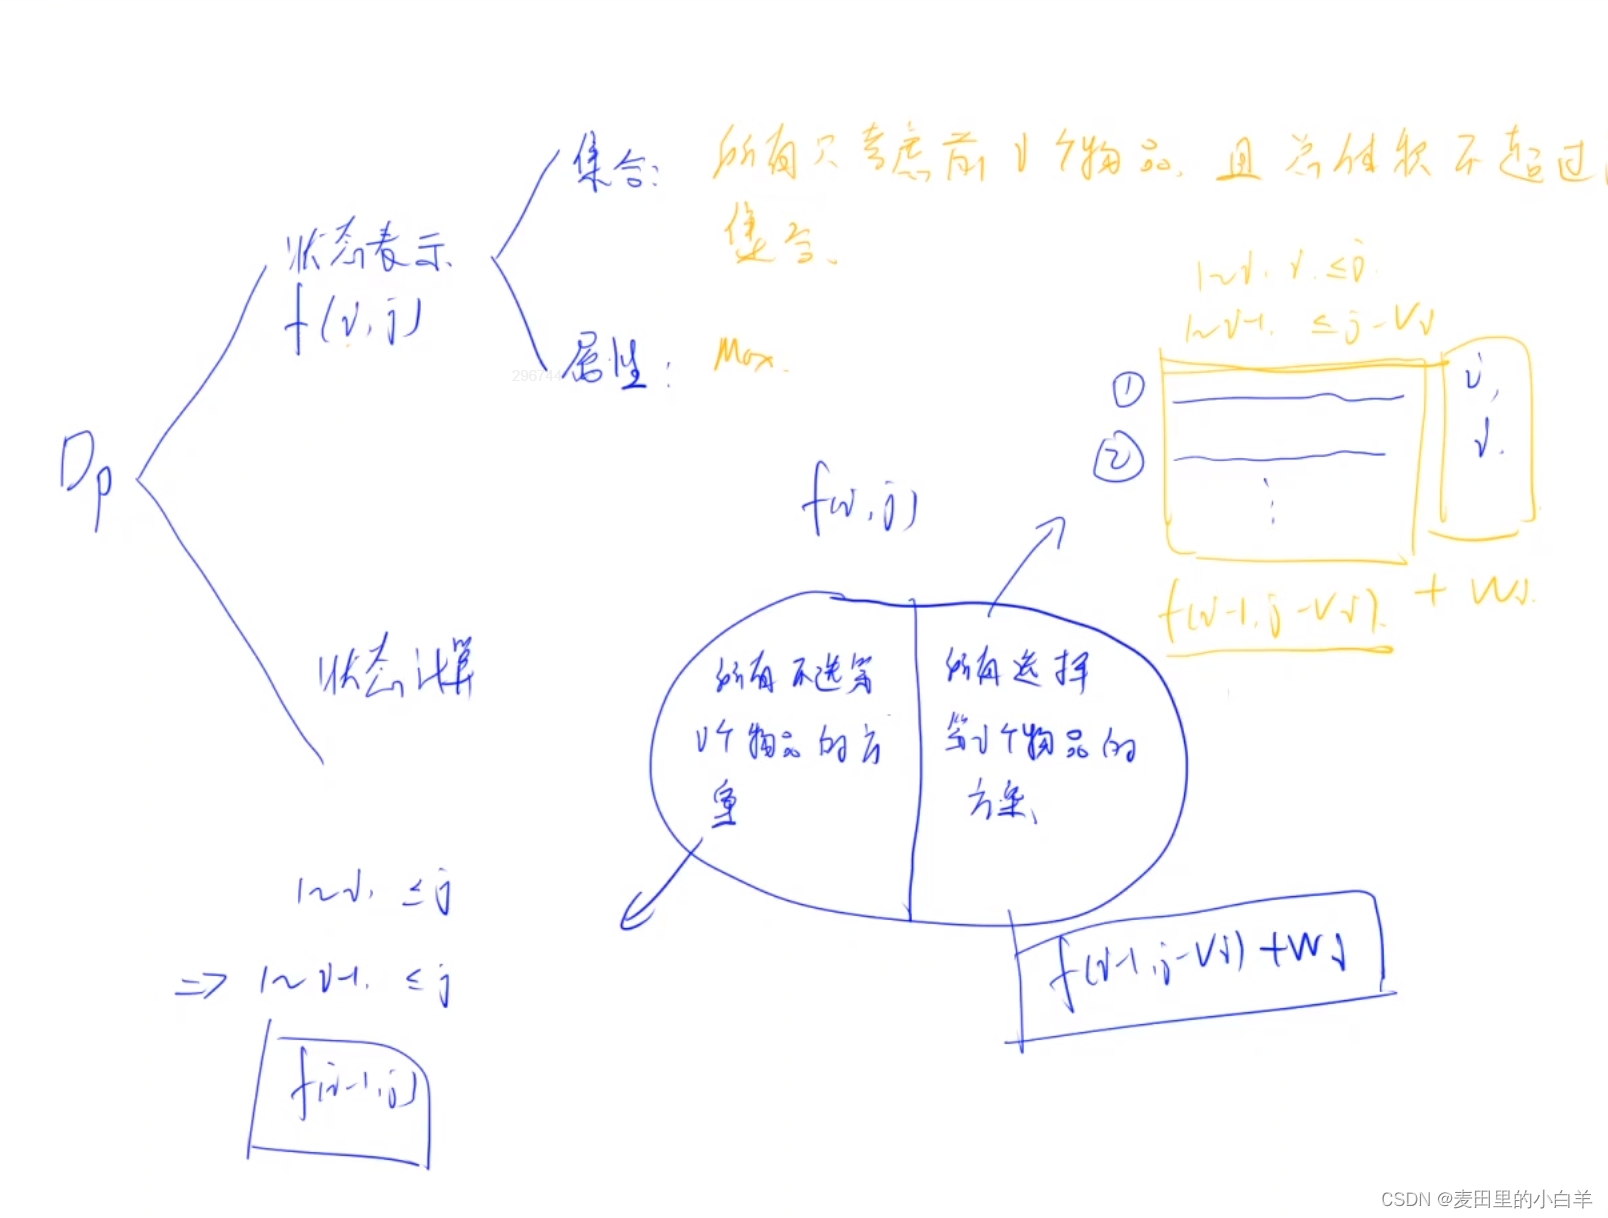 集合: 所有只考虑前i个物品, 且总体积不超过
集合.
状态表示
f(i,j)
属性: Max.
296744
Dp
1~i, ≤j
1~i-1, ≤j-Vi
①
②
⋮
i,
f(i-1,j-Vi). + Wi.
f(i,j)
状态计算
所有不选第
i个物品的方
案
所有选择
第i个物品的
方案.
1~i, ≤j
⇒ 1~i-1, ≤j
f(i-1,j)
f(i-1,j-Vi)+Wi
CSDN @麦田里的小白羊